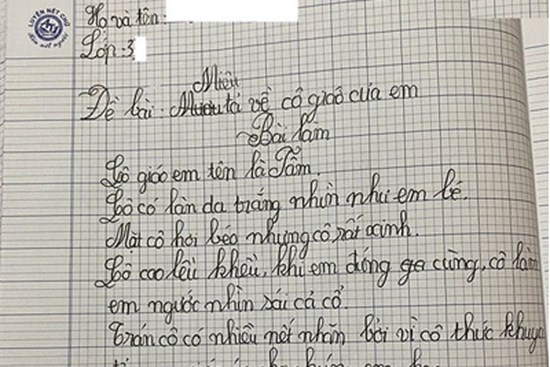 LUYỆN NÉT CHỮ
Rèn nết người
Họ và tên:
Lớp: 3
Miêu
Đề bài: tả về cô giáo của em
Bài làm
Cô giáo em tên là Tâm.
Cô có làn da trắng nhìn như em bé.
Mặt cô hơi béo nhưng cô rất xinh.
Cô cao lều khều, khi em đứng ga cùng, cô làm
em ngước nhìn sái cả cổ.
Trán cô có nhiều nét nhăn bởi vì cô thức khuya